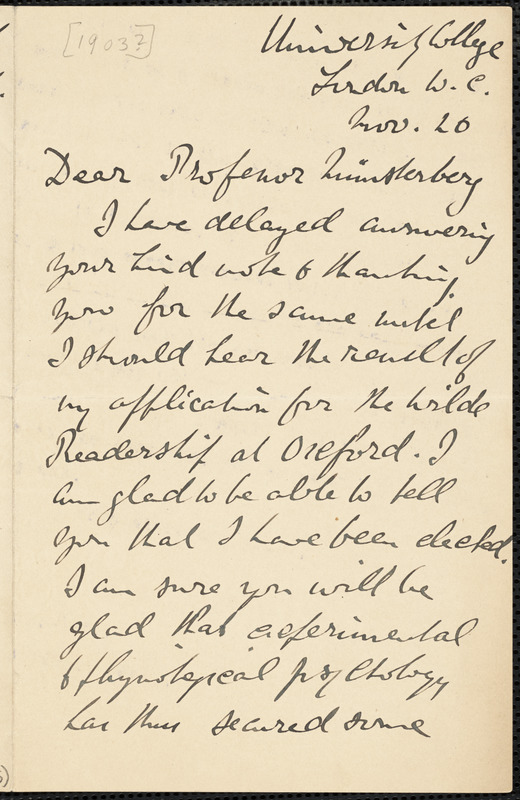 [1903?]
University College
London W. C.
Nov. 20
Dear Professor Münsterberg
I have delayed answering
your kind note & thanking
you for the same until
I should hear the result of
my application for the Wilde
Readership at Oxford. I
am glad to be able to tell
you that I have been elected.
I am sure you will be
glad that experimental
& physiological psychology
has thus secured some